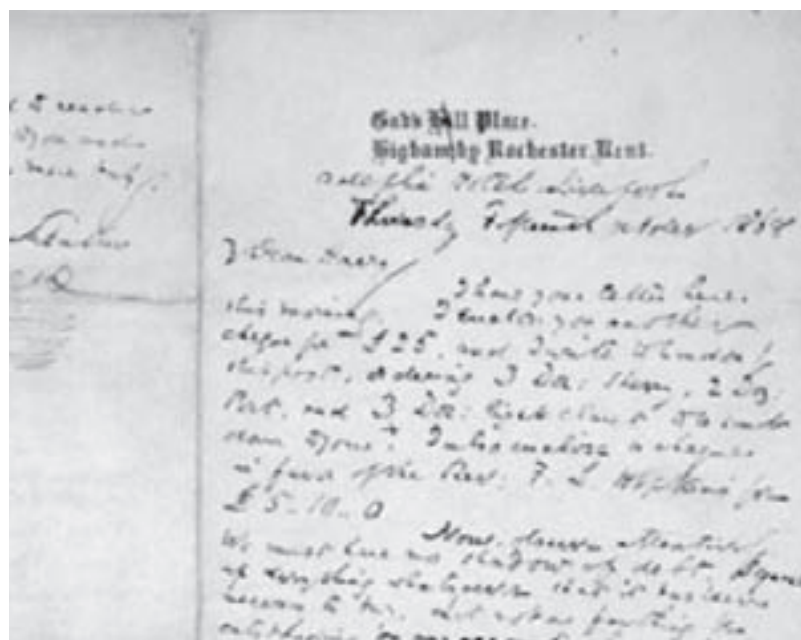 I resolve
Gad's Hill Place.
Higham by Rochester, Kent.
Adelphi Hotel Liverpool
Thursday Fifteenth October 1868
My Dear Harry
I have your letter here
this morning. I enclose you another
cheque for £25, and I write to London by
this post, ordering 3 Doz: Sherry, 2 Doz:
Port, and 3 Doz: light claret to be sent
down to you. I also enclose a cheque
in favor of the Rev: F. L. Hopkins for
£5..10..0
Now, observe attentively.
We must have no shadow of debt. Square
up everything whatsoever that it has been
necessary to buy. Let not a farthing be
outstanding on any account